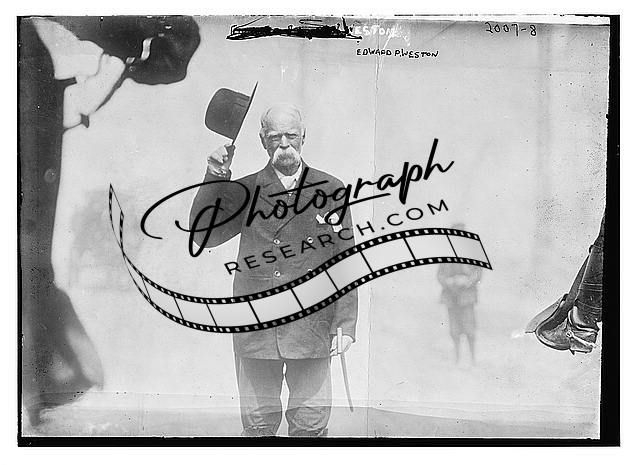 WESTON 2007-8
EDWARD P. WESTON
Photograph
RESEARCH.COM